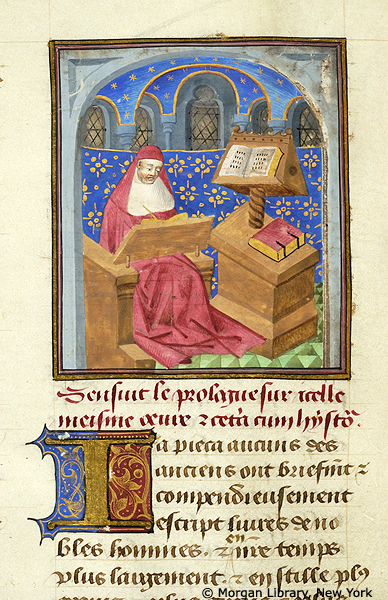 Sensuit le prologue sur icelle
meisme œuvre ⁊ ceta cum hysto.
Ia pieca aucuns des
anciens ont briefmt ⁊
compendieusement
escript liures de no
bles hommes. ⁊ en nre temps
plus largement. ⁊ en stille plus
© Morgan Library, New York